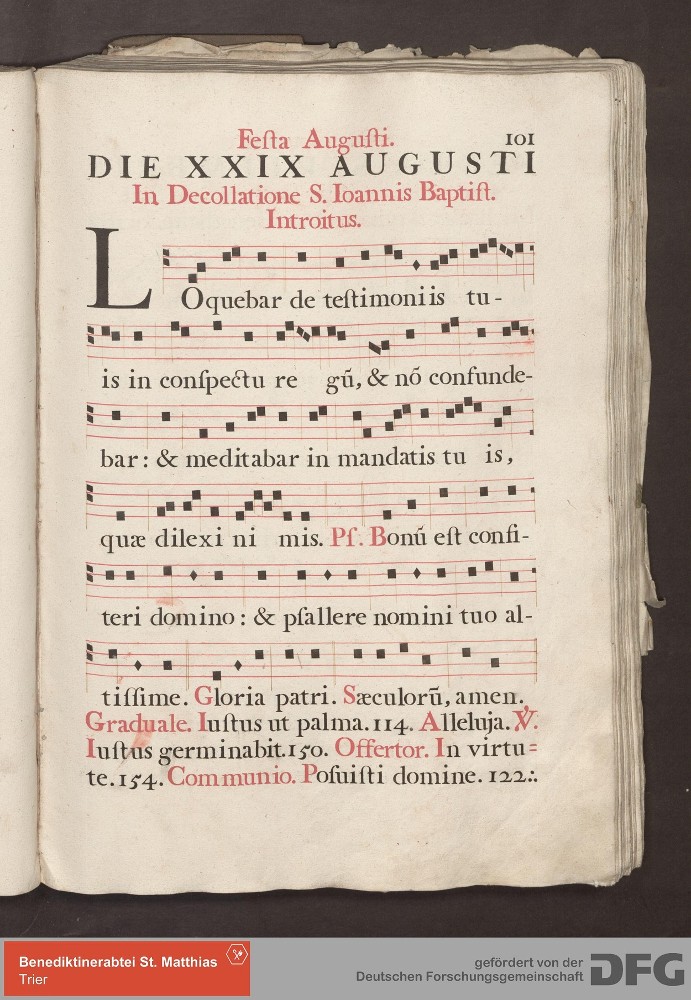 Feſta Auguſti.
101
DIE XXIX AUGUSTI
In Decollatione S. Ioannis Baptiſt.
Introitus.
LOquebar de teſtimoniis tu-
is in conſpectu re gū, & nō confunde-
bar: & meditabar in mandatis tu is,
quæ dilexi ni mis. Pſ. Bonū eſt confi-
teri domino: & pſallere nomini tuo al-
tiſſime. Gloria patri. Sæculorū, amen.
Graduale. Iuſtus ut palma. 114. Alleluja. ℣.
Iuſtus germinabit. 150. Offertor. In virtu=
te. 154. Communio. Poſuiſti domine. 122.
Benediktinerabtei St. Matthias
Trier
gefördert von der
Deutschen Forschungsgemeinschaft
DFG